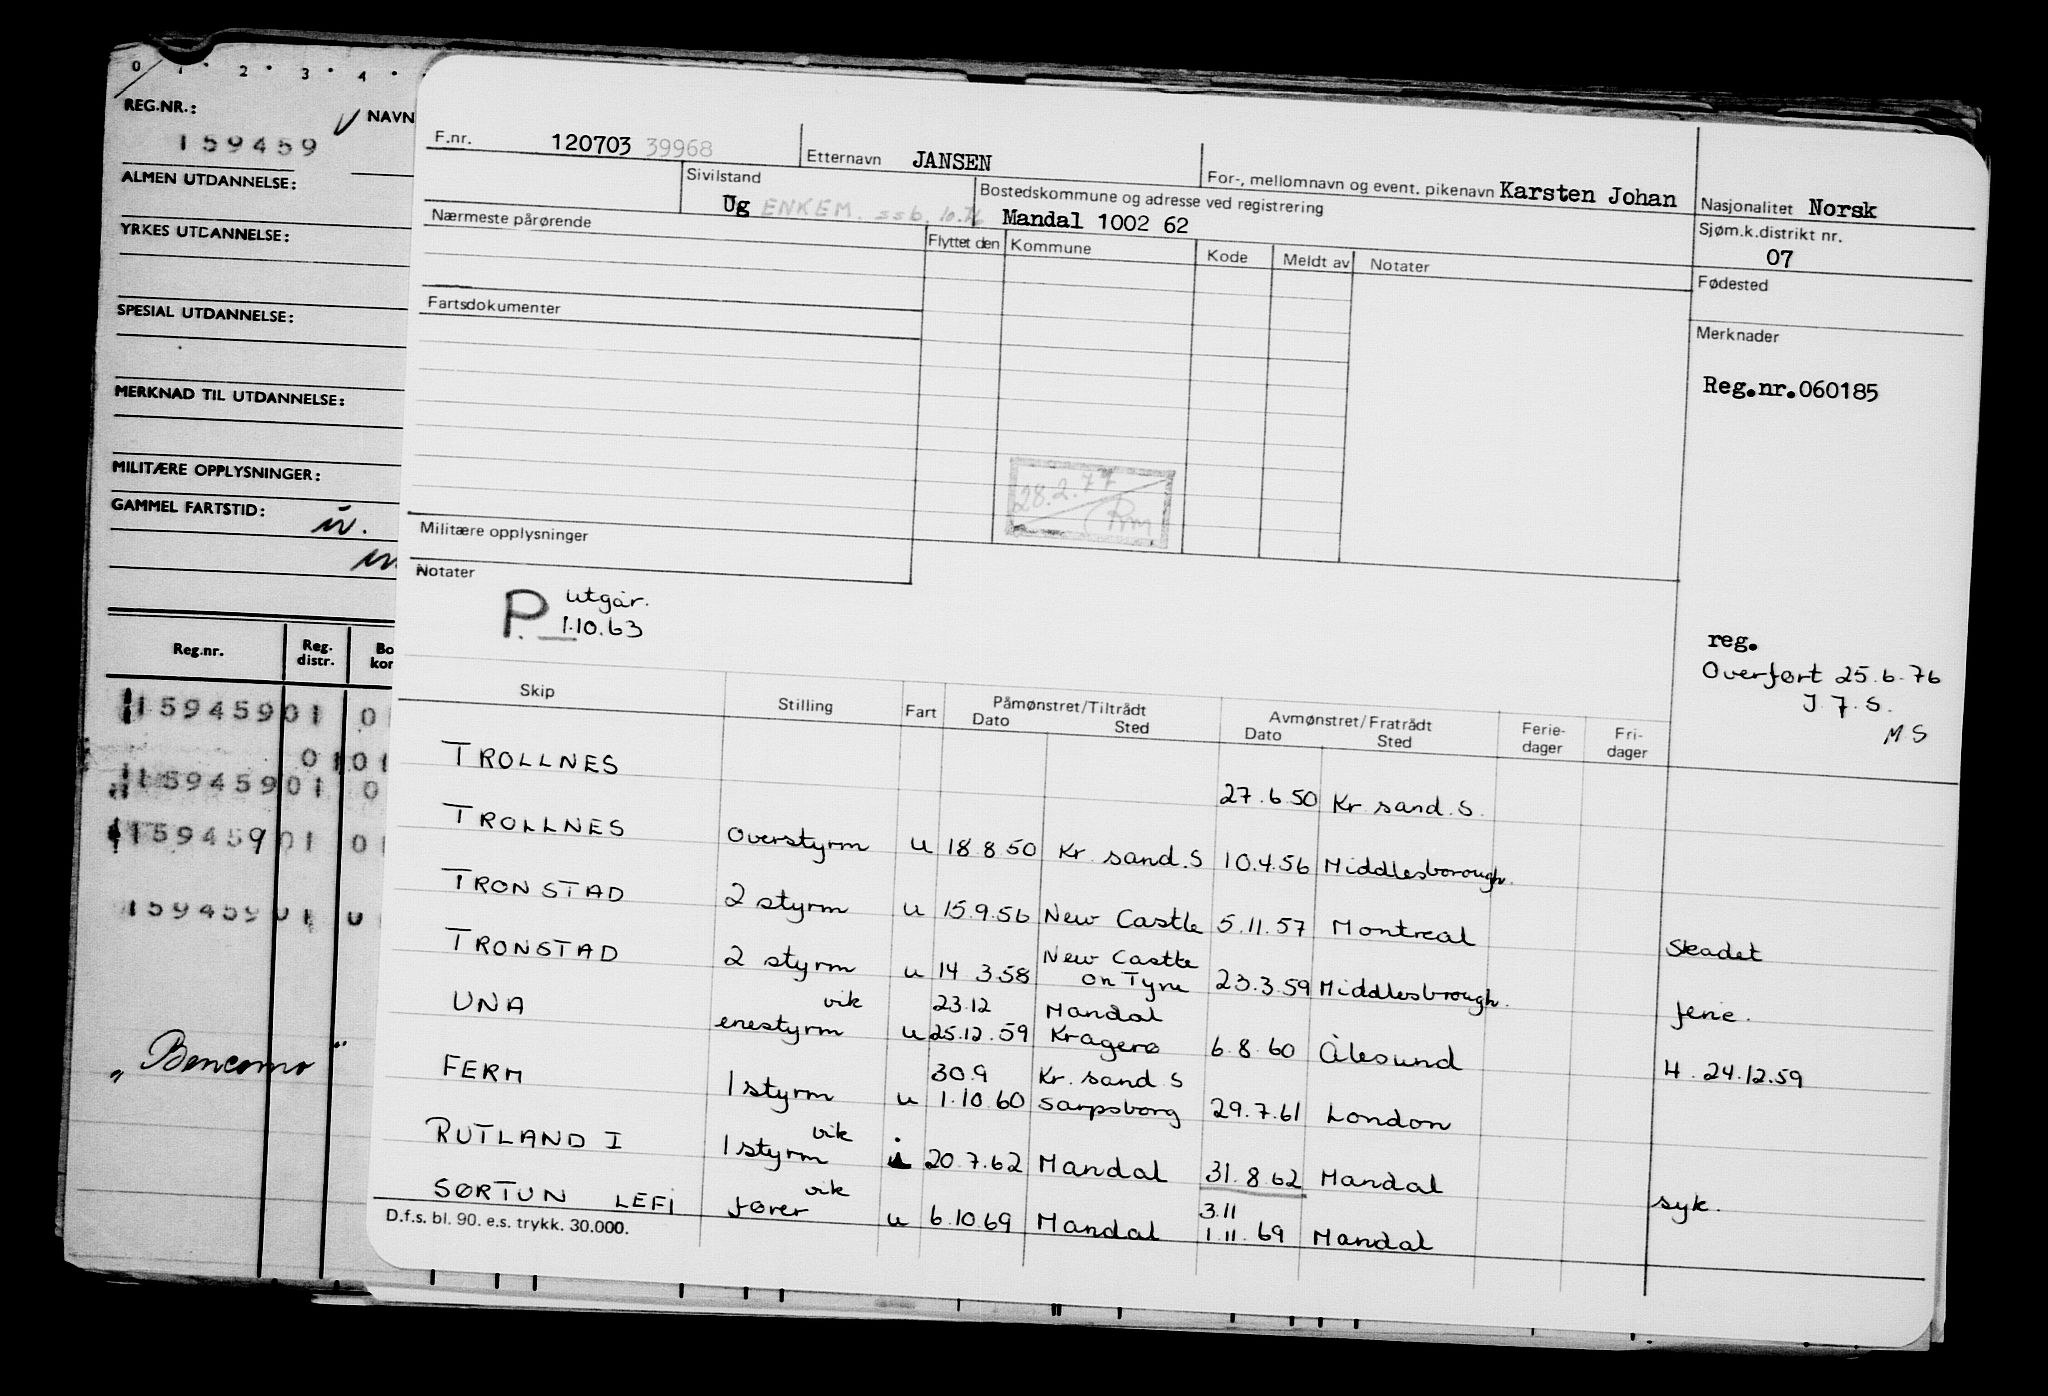 0 1 2 3 4
REG.NR.:
159459
NAVN
ALMEN UTDANNELSE:
YRKES UTDANNELSE:
SPESIAL UTDANNELSE:
MERKNAD TIL UTDANNELSE:
MILITÆRE OPPLYSNINGER:
GAMMEL FARTSTID:
Reg.nr. Reg. distr. Bo kor
159459 01 0
01 01
159459 01 0
159459 01 0
159459 01 0
"Bencomo"
F.nr. 120703 39968
Etternavn JANSEN
For-, mellomnavn og event. pikenavn Karsten Johan
Nasjonalitet Norsk
Sivilstand
Ug ENKEM. ssb. 10.76
Bostedskommune og adresse ved registrering
Mandal 1002 62
Sjøm.k.distrikt nr.
07
Nærmeste pårørende
Flyttet den Kommune Kode Meldt av Notater
Fødested
Fartsdokumenter
Merknader
Reg.nr.060185
28.2.77
Rm
Militære opplysninger
Notater
P. utgår.
1.10.63
reg.
Overført 25.6.76
J.J.S.
MS
Skip Stilling Fart Påmønstret/Tiltrådt Dato Sted Avmønstret/Fratrådt Dato Sted Ferie-dager Fri-dager
TROLLNES 27.6.50 Kr. sand. S.
TROLLNES Overstyrm u 18.8.50 Kr. sand. S 10.4.56 Middlesborough.
TRONSTAD 2 styrm u 15.9.56 New Castle 5.11.57 Montreal Skadet
TRONSTAD 2 styrm u 14.3.58 New Castle on Tyne 23.3.59 Middlesbrough. ferie.
UNA vik enestyrm u 23.12 25.12.59 Mandal Kragerø 6.8.60 Ålesund H. 24.12.59
FERM 1 styrm u 30.9 1.10.60 Kr. sand S Sarpsborg 29.7.61 London
RUTLAND I vik 1 styrm i 20.7.62 Mandal 31.8.62 Mandal syk.
SØRTUN LEFI vik fører u 6.10.69 Mandal 3.11 1.11.69 Mandal
D.f.s. bl. 90. e.s. trykk. 30.000.